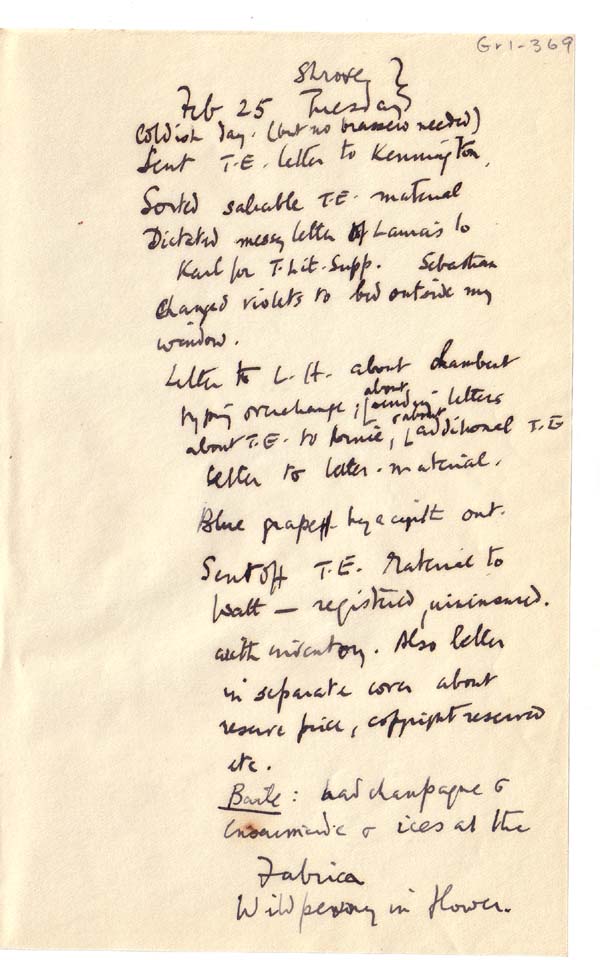 Gr1-369
Shrove }
Feb 25 Tuesday
Coldish day. (but no brassero needed)
Sent T.E. letter to Kennington.
Sorted saleable T.E. material
Dictated messy letter of Laura's to
Karl for T. Lit. Supp. Sebastian
changed violets to bed outside my
window.
Letter to L.H. about
typing overcharge, about sending letters
about T.E. to , about additional T.E
letter to later material.
Blue grape hyacinth out.
Sent off T.E. Material to
Watt — registered, uninsured.
with inventory. Also letter
in separate cover about
reserve price, copyright reserved
etc.
: had champagne &
ensaimada & ices at the
Fabrica
Wild peony in flower.